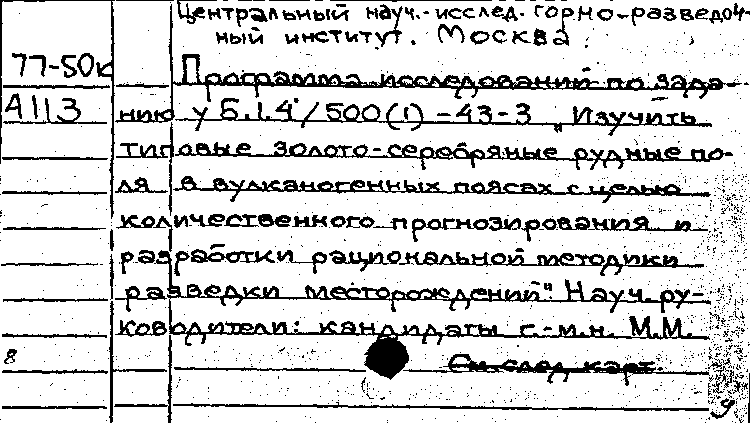 Центральный науч.-исслед. горно-разведоч-
ный институт. Москва.
77-50к Программа исследований по зада-
А113 нию у Б.I.4/500(1)-43-3 "Изучить
типовые золото-серебряные рудные по-
ля в вулканогенных поясах с целью
количественного прогнозирования и
разработки рациональной методики
разведки месторождений". Науч. ру-
ководители: кандидаты г.-м.н. М.М.
8 См. след. карт.
9